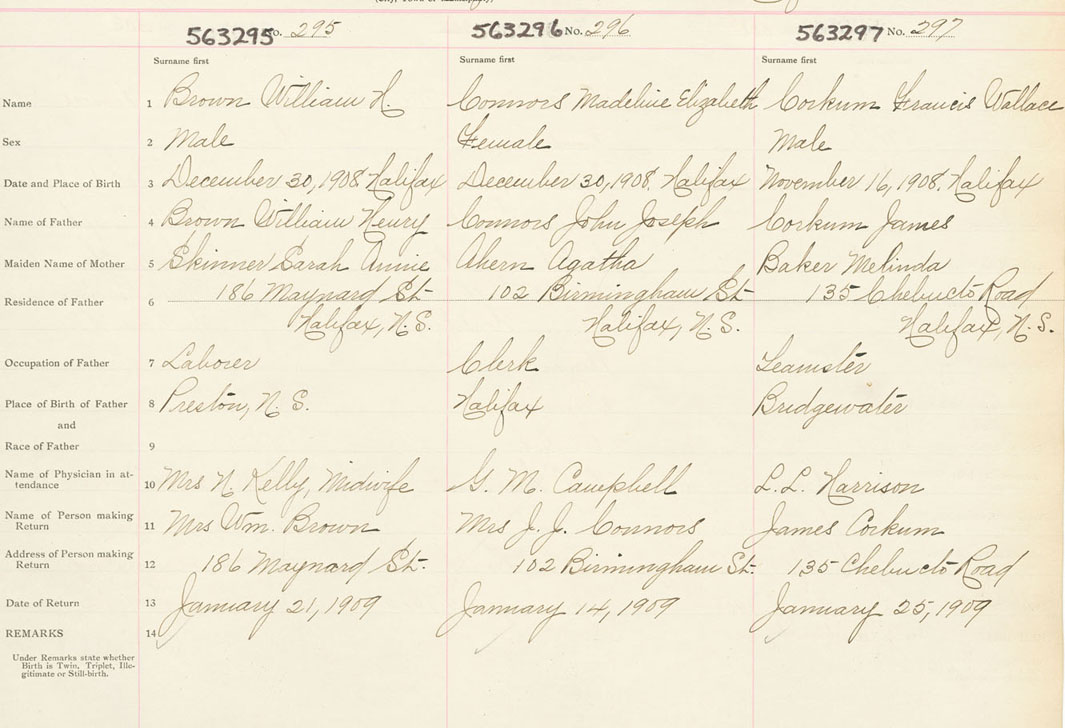 563295 No. 295 563296 No. 296 563297 No. 297
Surname first Surname first Surname first
Name 1 Brown William H. Connors Madeline Elizabeth Corkum Francis Wallace
Sex 2 Male Female Male
Date and Place of Birth 3 December 30, 1908 Halifax December 30, 1908. Halifax November 16, 1908. Halifax
Name of Father 4 Brown William Henry Connors John Joseph Corkum James
Maiden Name of Mother 5 Skinner Sarah Annie Ahern Agatha Baker Melinda
Residence of Father 6 186 Maynard St. 102 Birmingham St. 135 Chebucto Road
Halifax, N.S. Halifax, N.S. Halifax, N.S.
Occupation of Father 7 Laborer Clerk Teamster
Place of Birth of Father 8 Preston, N.S. Halifax Bridgewater
and
Race of Father 9
Name of Physician in at-
tendance 10 Mrs N. Kelly, Midwife G. M. Campbell L. L. Harrison
Name of Person making
Return 11 Mrs Wm. Brown Mrs J. J. Connors James Corkum
Address of Person making
Return 12 186 Maynard St. 102 Birmingham St. 135 Chebucto Road
Date of Return 13 January 21, 1909 January 14, 1909 January 25, 1909
REMARKS 14
Under Remarks state whether
Birth is Twin, Triplet, Ille-
gitimate or Still-birth.